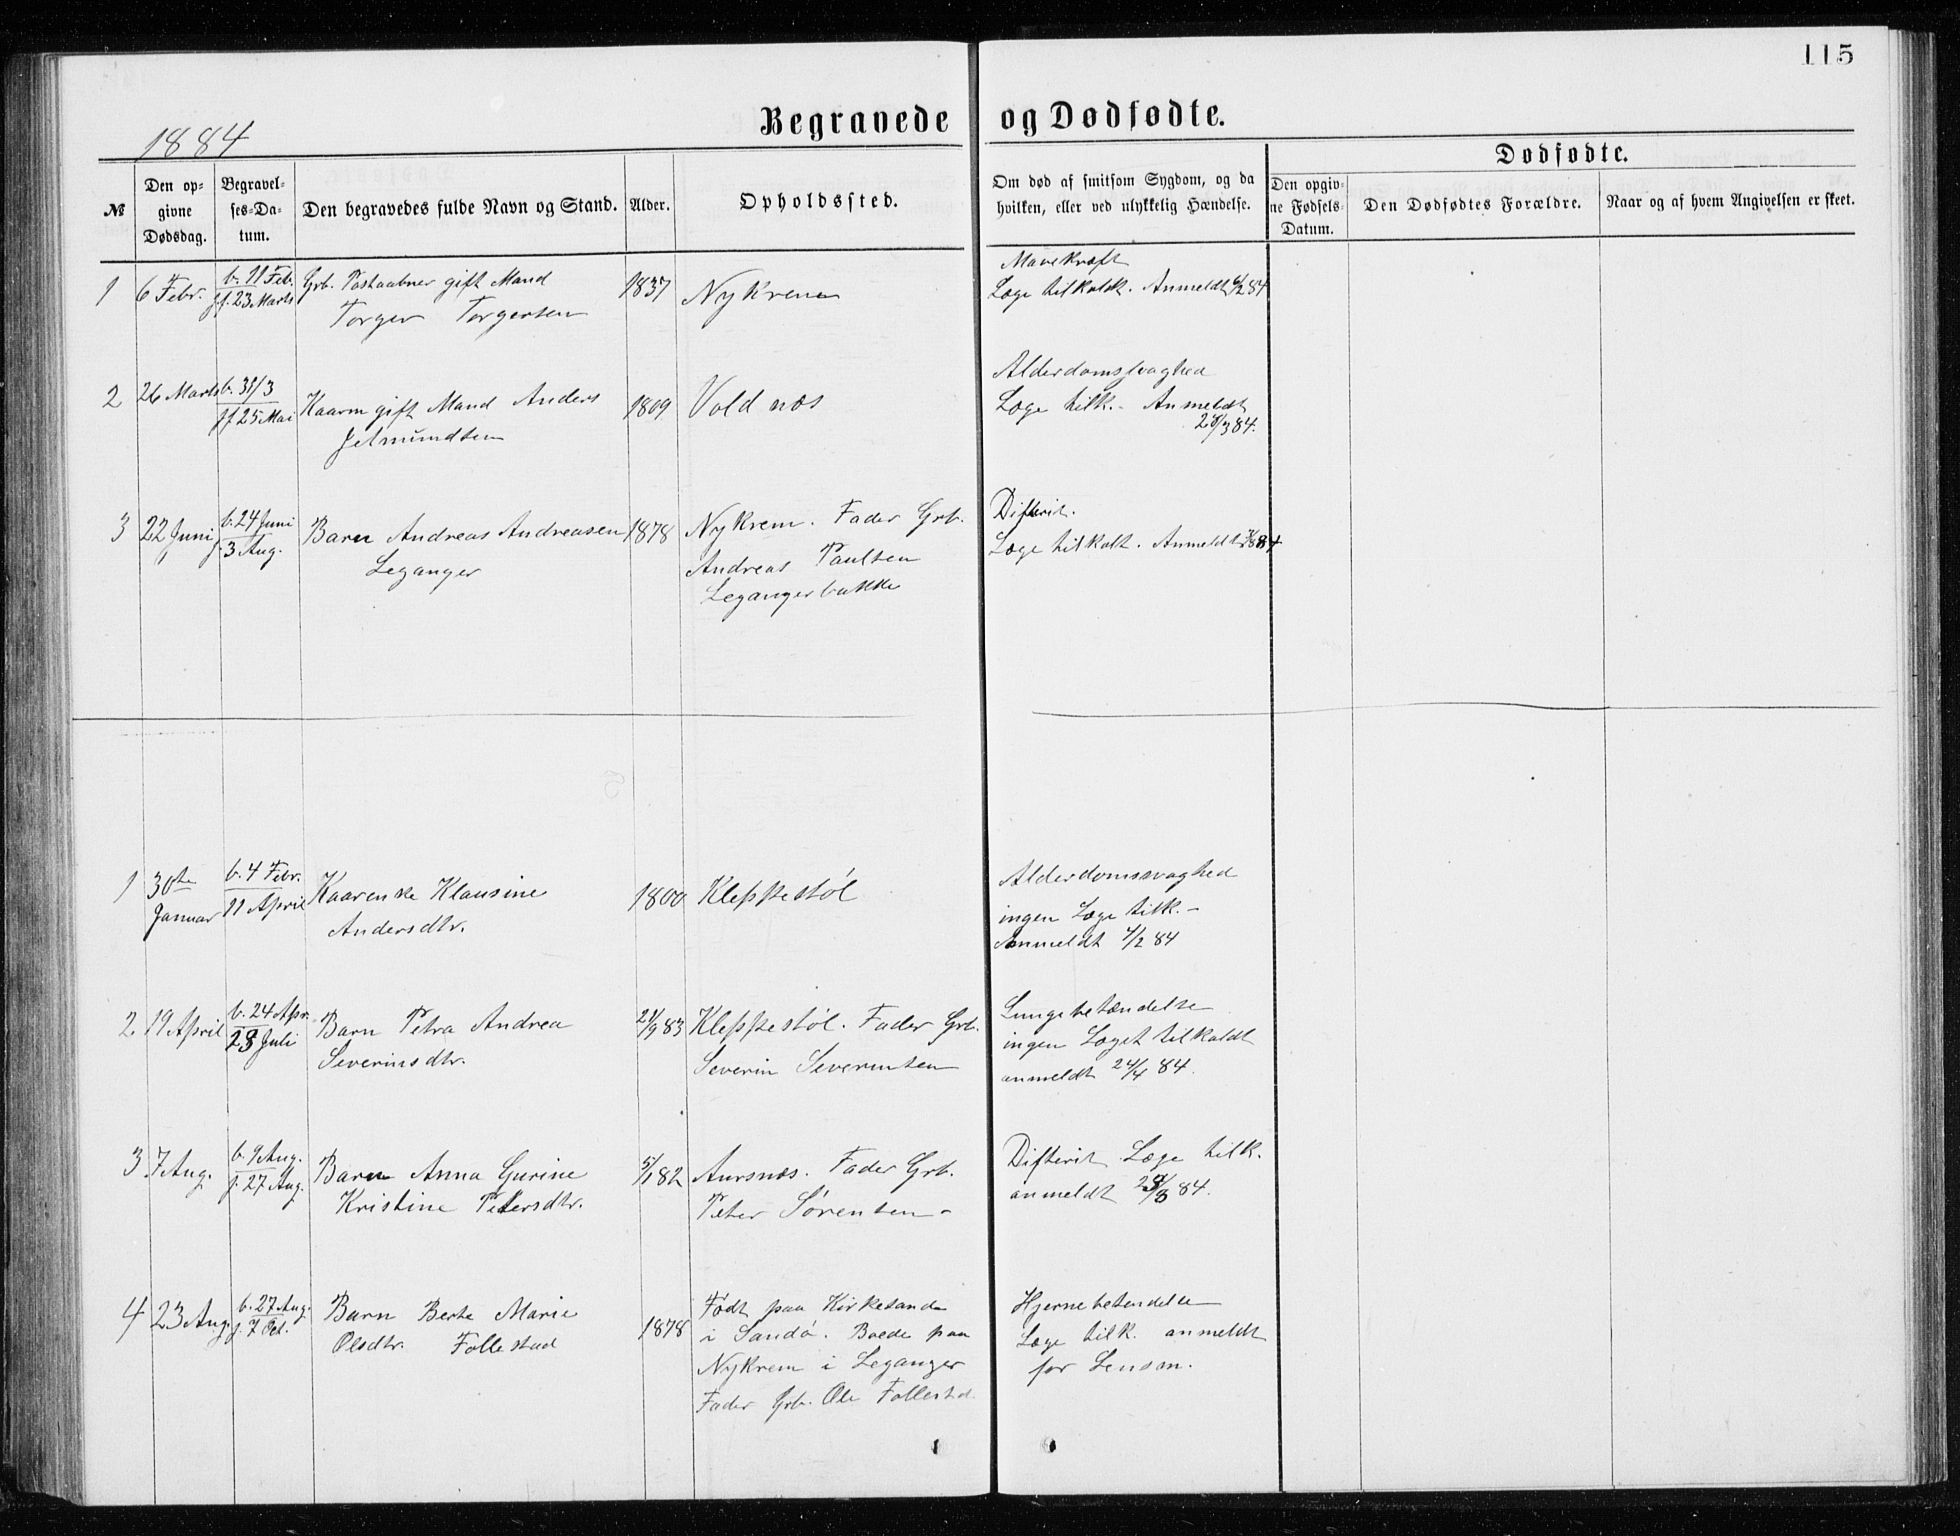 115
Begravede og Dødfødte.
1884
Dødfødte.
№
Den opgivne Dødsdag.
Begravelses-Datum.
Den begravedes fulde Navn og Stand.
Alder.
Opholdssted.
Om død af smitsom Sygdom, og da hvilken, eller ved ulykkelig Hændelse.
Den opgivne Fødsels-Datum.
Den Dødfødtes Forældre.
Naar og af hvem Angivelsen er skeet.
1 6 Febr. b. 11 Feb. Grb. Postaabner gift Mand 1837 Nykrem Mavekræft
jf. 23 Marts Torger Torgersen Læge tilkaldt. Anmeldt 9/2 84
2 26 Marts b. 31/3 Kaarm gift Mand Anders 1809 Voldnæs Alderdomssvaghed
jf 25 Mai Jetmundsen Læge tilk. - Anmeldt
28/3 84.
3 22 Juni b. 24 Juni Barn Andreas Andreasen 1878 Nykrem. Fader Grb. Difterit.
j. 3 Aug. Leganger Andreas Paulsen Læge tilkalt. Anmeldt
Legangerbakke
1 30te b. 4 Febr. Kaarenke Klausine 1800 Kleppestøl Alderdomssvaghed
Januar 11 April Andersdtr. ingen Læge tilk. -
Anmeldt 4/2 84
2 19 April b. 24 Apr. Barn Petra Andrea 21/9 83 Kleppestøl. Fader Grb. Lungebetændelse
28 Juli Severinsdtr. Severin Severinsen ingen Læget tilkaldt
anmeldt 24/4 84.
3 7 Aug. b. 9 Aug. Barn Anna Gurine 5/1 82 Aursnæs. Fader Grb. Difterit Læge tilk.
j. 27 Aug. Kristine Petersdtr. Peter Sørensen - anmeldt 84.
4 23 Aug. b. 27 Aug. Barn Berte Marie 1878 Født paa Kirkesande Hjernebetendelse
j. 7 Oct. Olsdtr. Follestad i Sandø. Boede paa Læge tilk. anmeldt
Nykrem i Leganger for Lensm.
Fader Grb. Ole Follestad